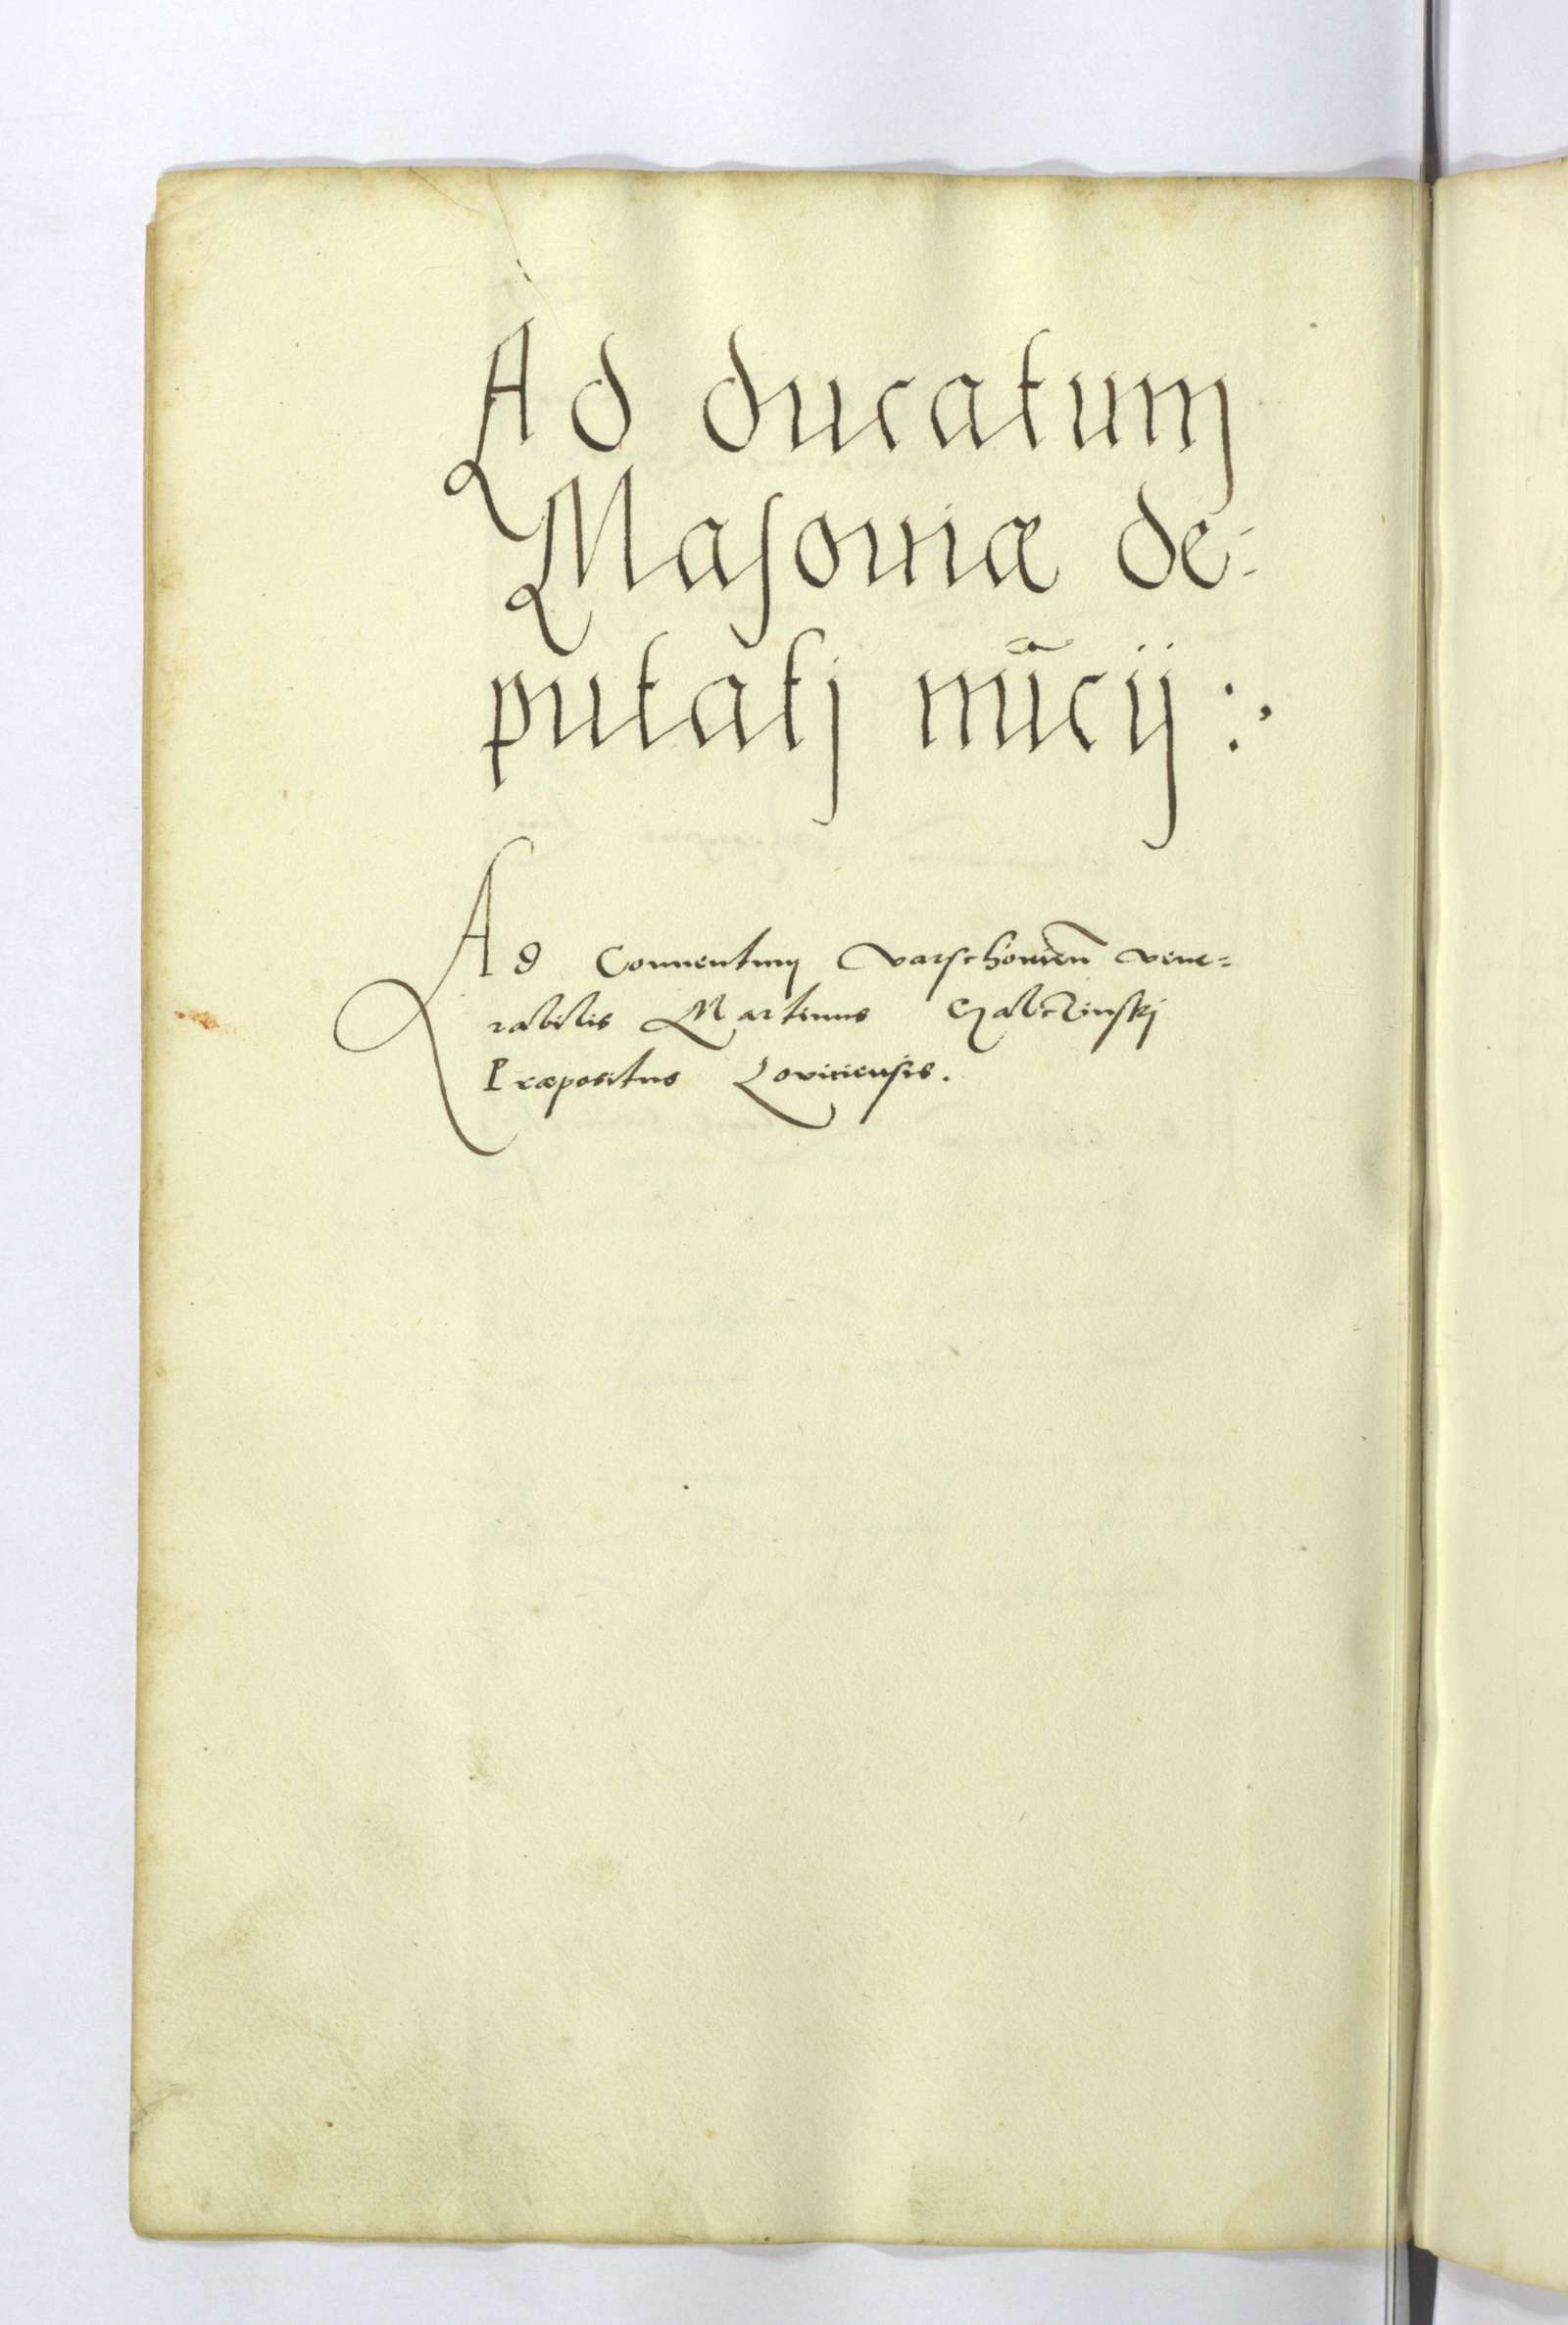 Ad ducatum
Masouiæ de-
putatj nūcij :,
Ad Conuentum Varschouień vene=
rabilis Martinus
Præpositus Loviciensis.